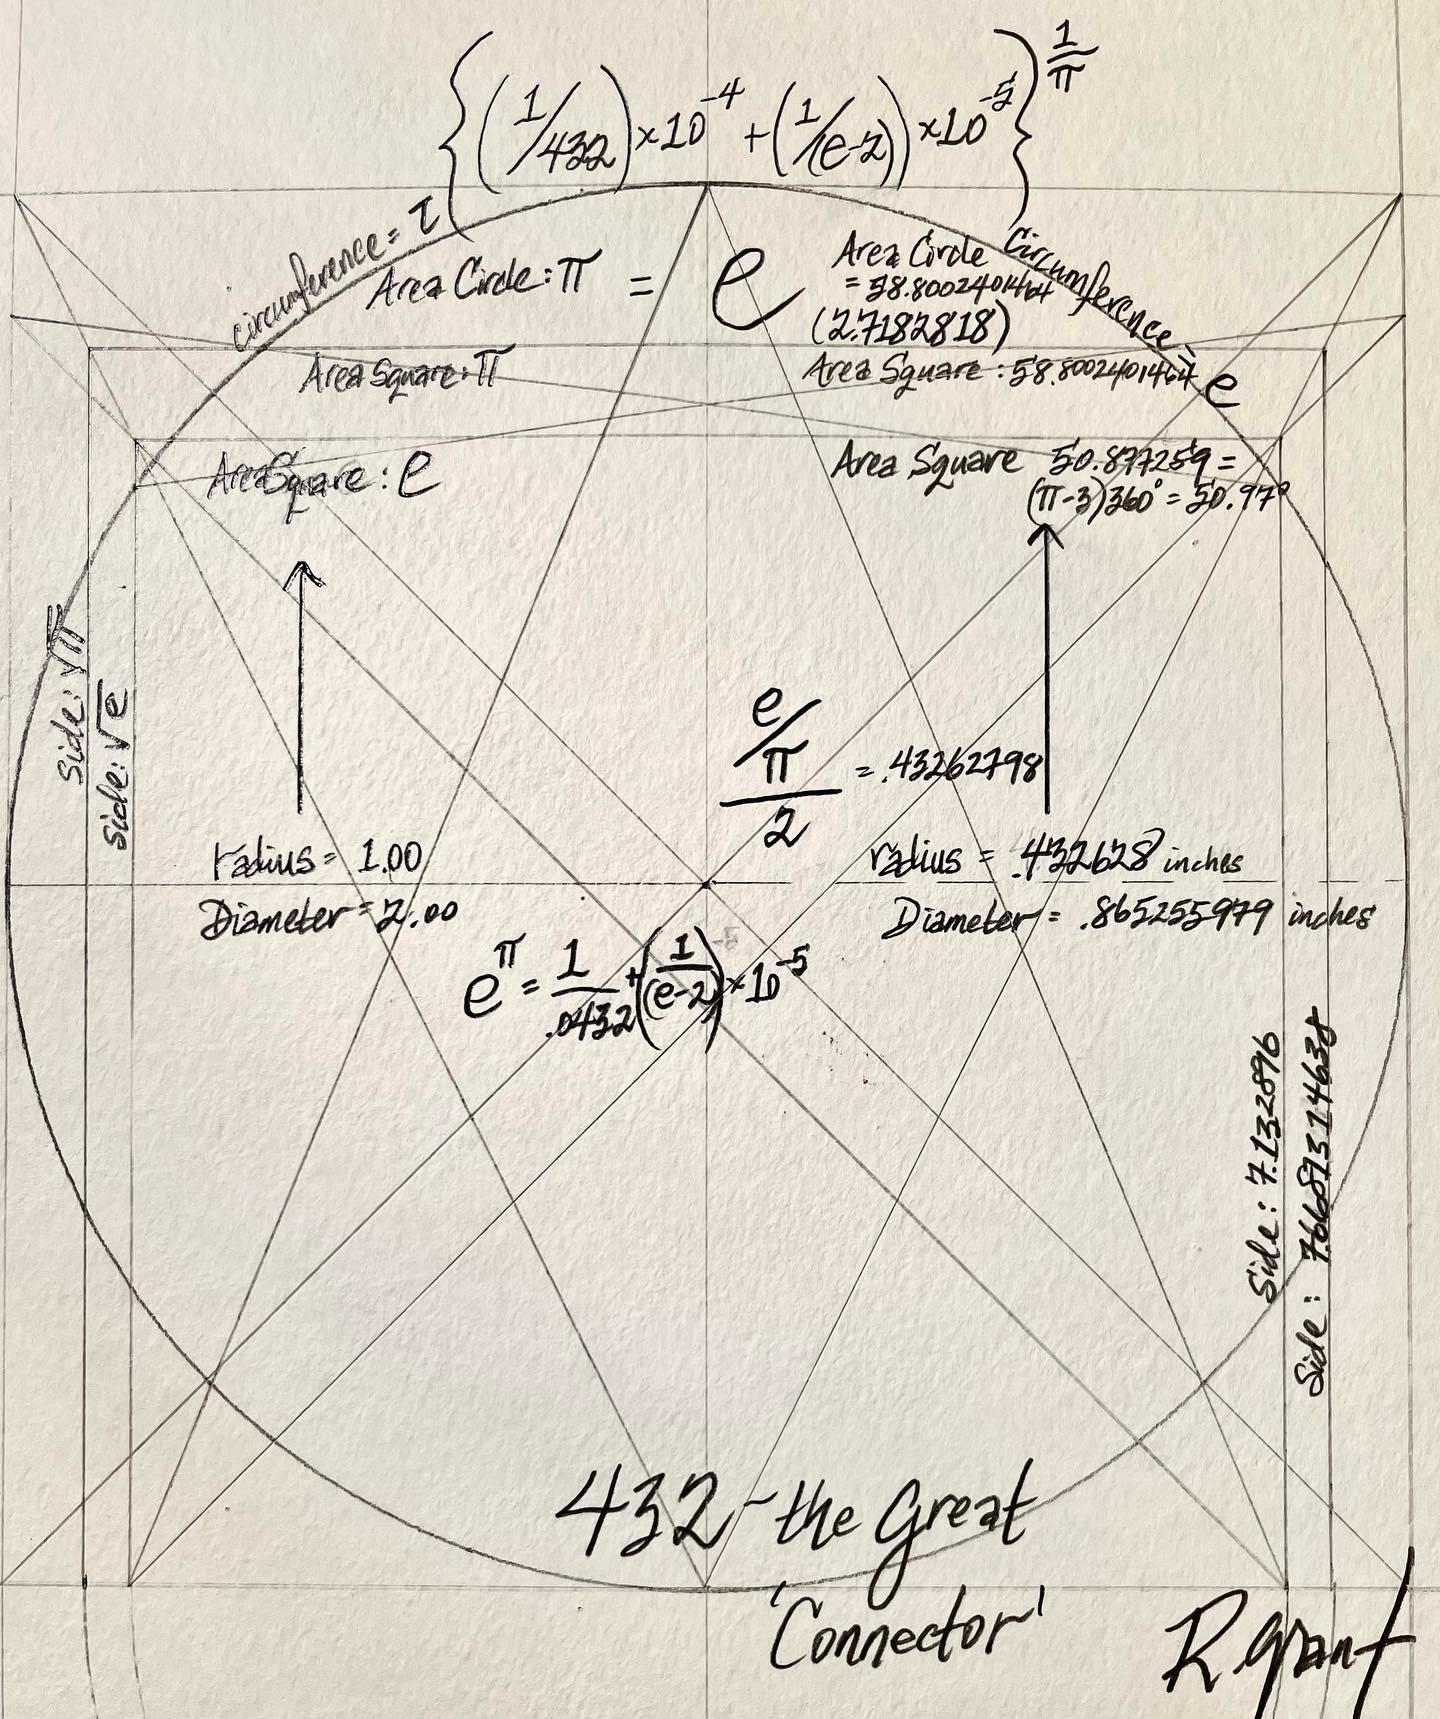 {(1/432)×10⁻⁴ + (1/(e-2))×10⁻⁵}^(1/π)
circumference = τ
Area Circle: π = e
Area Circle
= 58.8002401464
(2.7182818)
Circumference = e
Area Square: π
Area Square: 58.8002401464
Area Square: e
Area Square 50.877259 =
(π-3)360° = 50.97°
Side: √π
Side: √e
e/π / 2 = .43262798
radius = 1.00
Diameter = 2.00
radius = .432628 inches
Diameter = .865255979 inches
e^π = 1/.0432 + (1/(e-2)) × 10⁻⁵
Side: 7.132896
Side: 7.6681314638
432 - the Great
'Connector'
R.grant